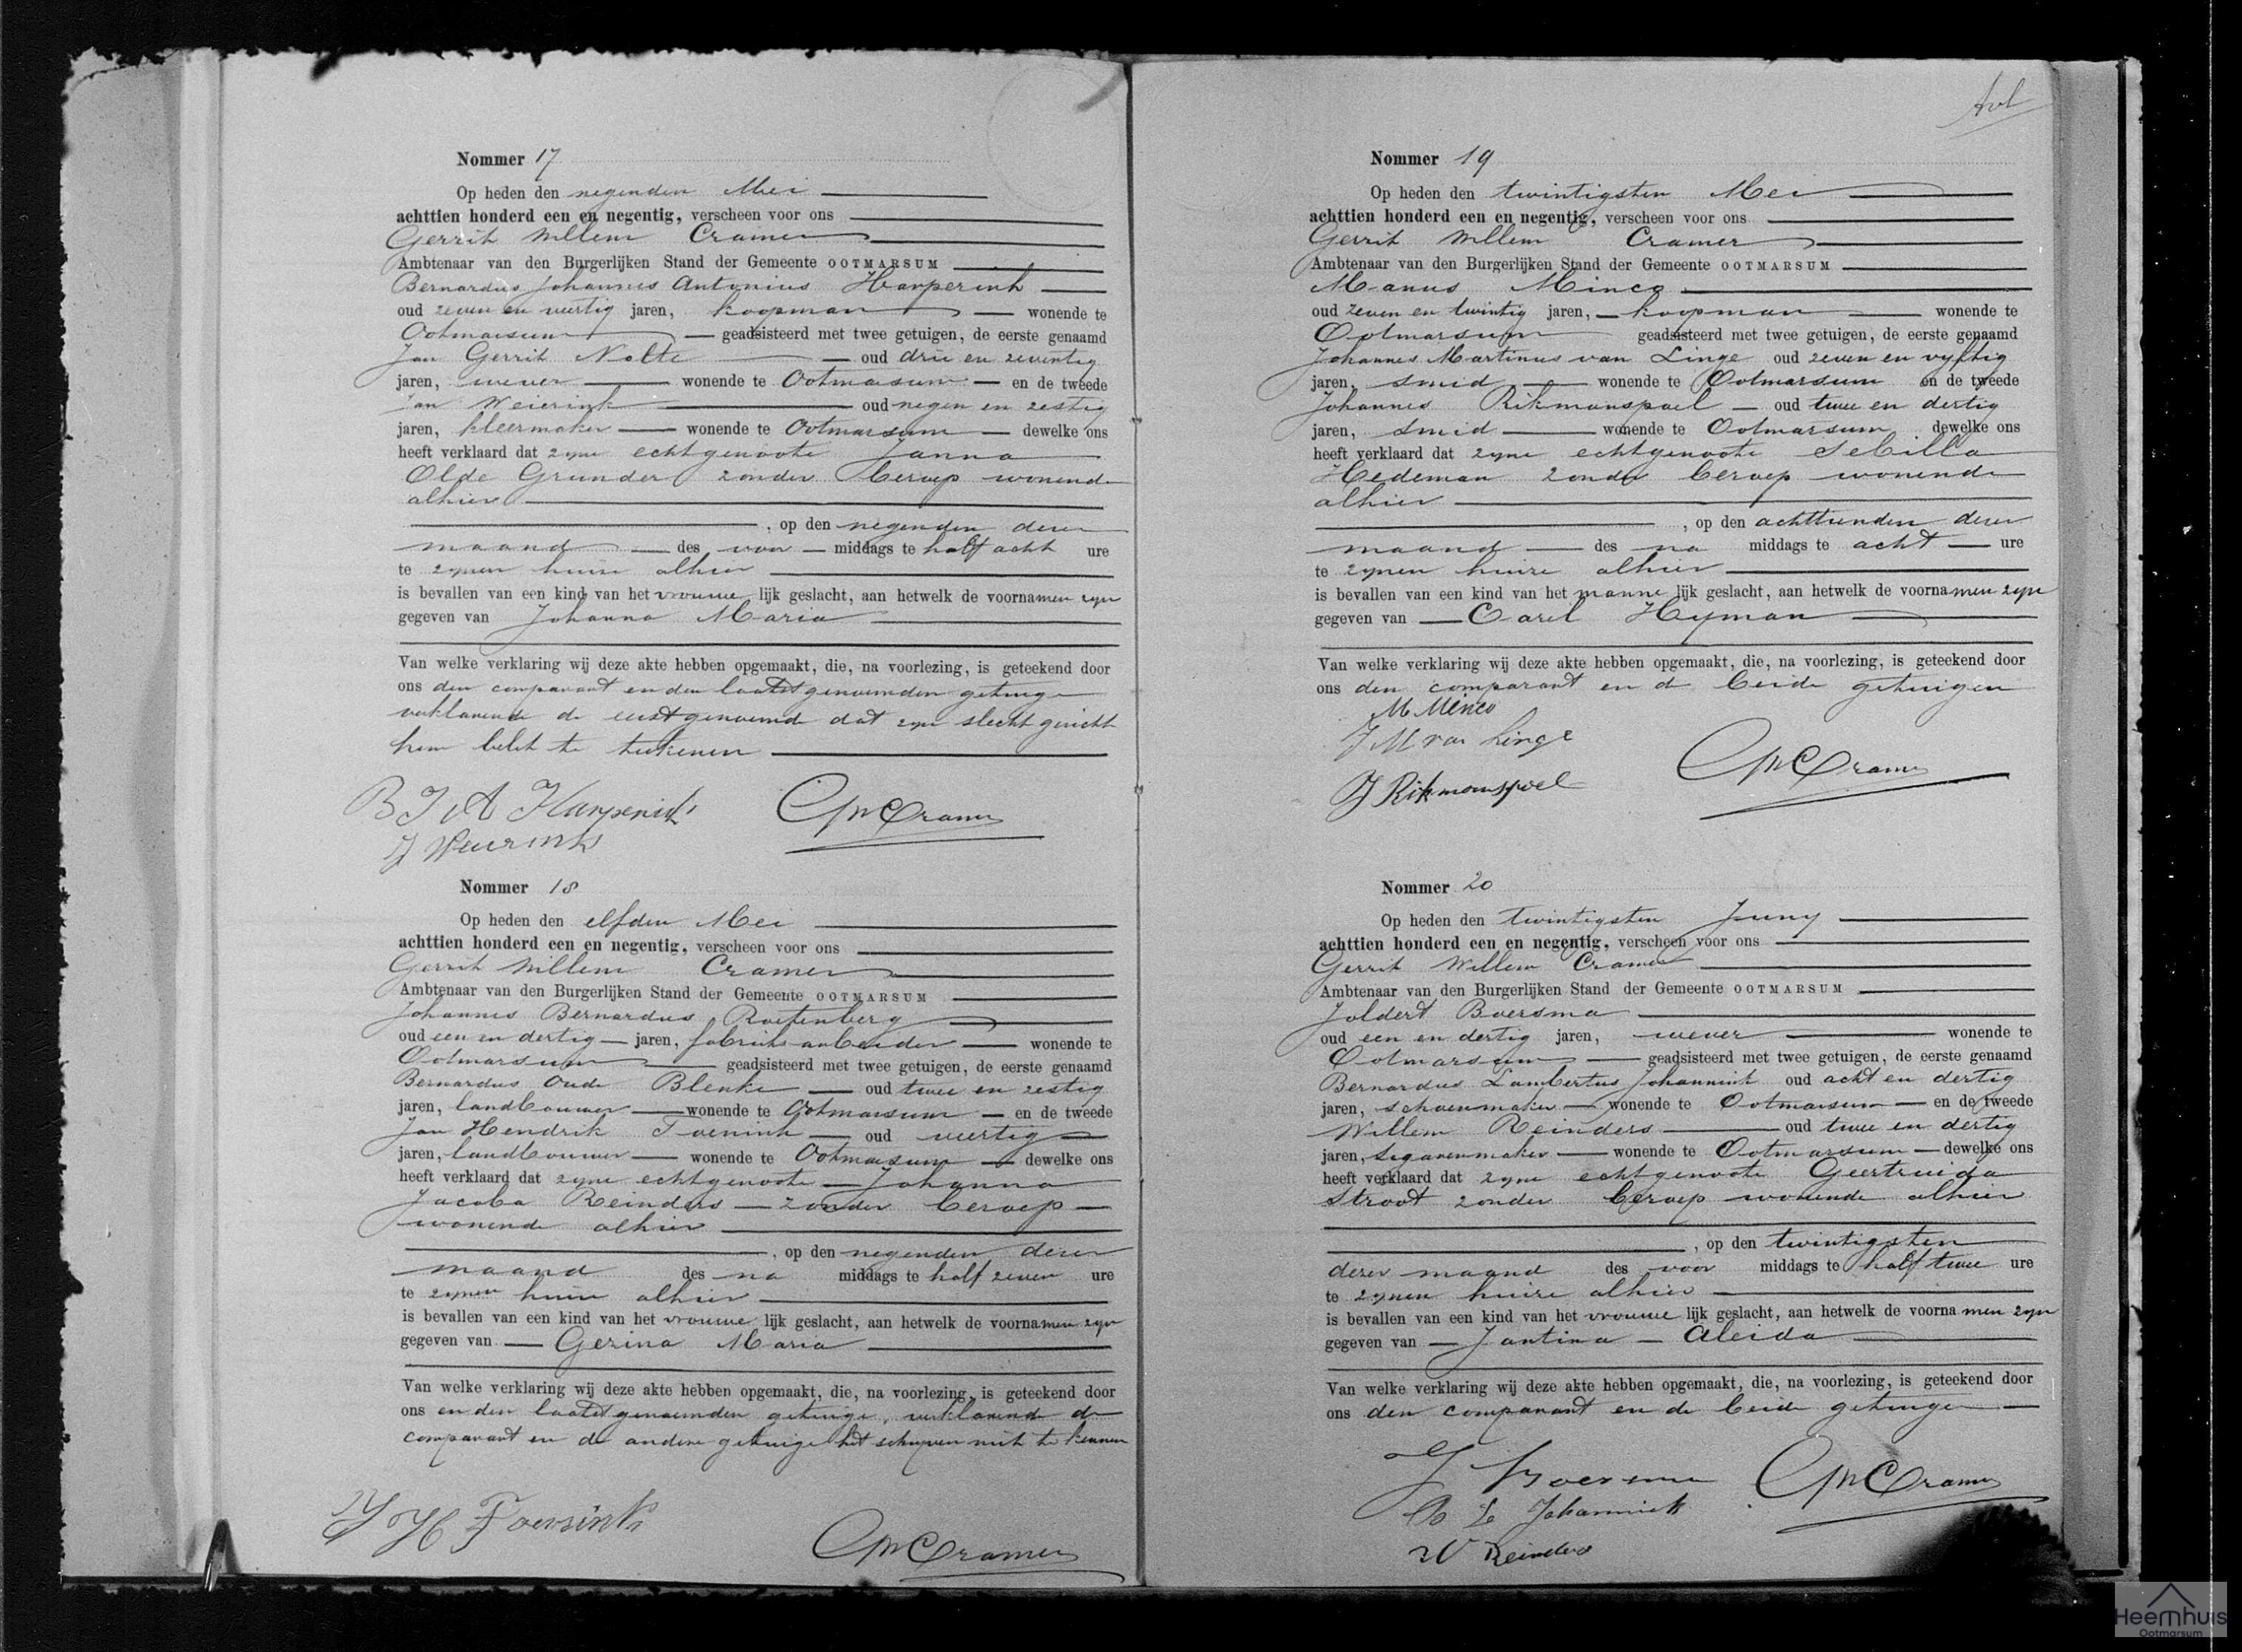 Nommer 17
Op heden den negenden Mei
achttien honderd een en negentig, verscheen voor ons
Gerrit Willem Cramer
Ambtenaar van den Burgerlijken Stand der Gemeente OOTMARSUM
Bernardus Johannes Antonius Harperink
oud zeven en veertig jaren, koopman wonende te
Ootmarsum geadsisteerd met twee getuigen, de eerste genaamd
Jan Gerrit Nolte oud drie en zeventig
jaren, wever wonende te Ootmarsum en de tweede
Jan Weierink oud negen en zestig
jaren, kleermaker wonende te Ootmarsum dewelke ons
heeft verklaard dat zyne echtgenoote Janna
Olde Grunder zonder beroep wonende
alhier
, op den negenden dezer
maand des voor middags te half acht ure
te zynen huize alhier
is bevallen van een kind van het vrouwe lijk geslacht, aan hetwelk de voornamen zyn
gegeven van Johanna Maria
Van welke verklaring wij deze akte hebben opgemaakt, die, na voorlezing, is geteekend door
ons den comparant en den laatstgenoemden getuige
verklarende de eerstgenoemde dat zyn slecht gezicht
hem belet te teekenen
B J A Harperink
J Weierink GW Cramer
Nommer 18
Op heden den elfden Mei
achttien honderd een en negentig, verscheen voor ons
Gerrit Willem Cramer
Ambtenaar van den Burgerlijken Stand der Gemeente OOTMARSUM
Johannes Bernardus
oud een en dertig jaren, fabrieks arbeider wonende te
Ootmarsum geadsisteerd met twee getuigen, de eerste genaamd
Bernardus Oude Blenke oud twee en zestig
jaren, landbouwer wonende te Ootmarsum en de tweede
Jan Hendrik oud veertig
jaren, landbouwer wonende te Ootmarsum dewelke ons
heeft verklaard dat zyne echtgenoote Johanna
Jacoba Reinders zonder beroep
wonende alhier
, op den negenden dezer
maand des na middags te half zeven ure
te zynen huize alhier
is bevallen van een kind van het vrouwe lijk geslacht, aan hetwelk de voornamen zyn
gegeven van Gezina Maria
Van welke verklaring wij deze akte hebben opgemaakt, die, na voorlezing, is geteekend door
ons en den laatstgenoemden getuige, verklarende de
comparant en de andere getuige het schryven niet te kennen
J H
GW Cramer
Nommer 19
Op heden den twintigsten Mei
achttien honderd een en negentig, verscheen voor ons
Gerrit Willem Cramer
Ambtenaar van den Burgerlijken Stand der Gemeente OOTMARSUM
Manus Minco
oud zeven en twintig jaren, koopman wonende te
Ootmarsum geadsisteerd met twee getuigen, de eerste genaamd
Johannes Martinus van Linge oud zeven en vyftig
jaren, smid wonende te Ootmarsum en de tweede
Johannes Rikmanspoel oud twee en dertig
jaren, smid wonende te Ootmarsum dewelke ons
heeft verklaard dat zyne echtgenoote Sebilla
Hedeman zonder beroep wonende
alhier
, op den achttienden dezer
maand des na middags te acht ure
te zynen huize alhier
is bevallen van een kind van het manne lijk geslacht, aan hetwelk de voornamen zyn
gegeven van Carel Hyman
Van welke verklaring wij deze akte hebben opgemaakt, die, na voorlezing, is geteekend door
ons den comparant en de beide getuigen
M Minco
J M van Linge
J Rikmanspoel GW Cramer
Nommer 20
Op heden den twintigsten Juny
achttien honderd een en negentig, verscheen voor ons
Gerrit Willem Cramer
Ambtenaar van den Burgerlijken Stand der Gemeente OOTMARSUM
Joldert Boersma
oud een en dertig jaren, wever wonende te
Ootmarsum geadsisteerd met twee getuigen, de eerste genaamd
Bernardus Lambertus Johannink oud acht en dertig
jaren, schoenmaker wonende te Ootmarsum en de tweede
Willem Reinders oud twee en dertig
jaren, segarenmaker wonende te Ootmarsum dewelke ons
heeft verklaard dat zyne echtgenoote Geertruida
Stroot zonder beroep wonende alhier
, op den twintigsten
dezer maand des voor middags te half twee ure
te zynen huize alhier
is bevallen van een kind van het vrouwe lijk geslacht, aan hetwelk de voornamen zyn
gegeven van Jantina Aleida
Van welke verklaring wij deze akte hebben opgemaakt, die, na voorlezing, is geteekend door
ons den comparant en de beide getuigen
J Boersma GW Cramer
B L Johannink
W Reinders
Heemhuis
Ootmarsum